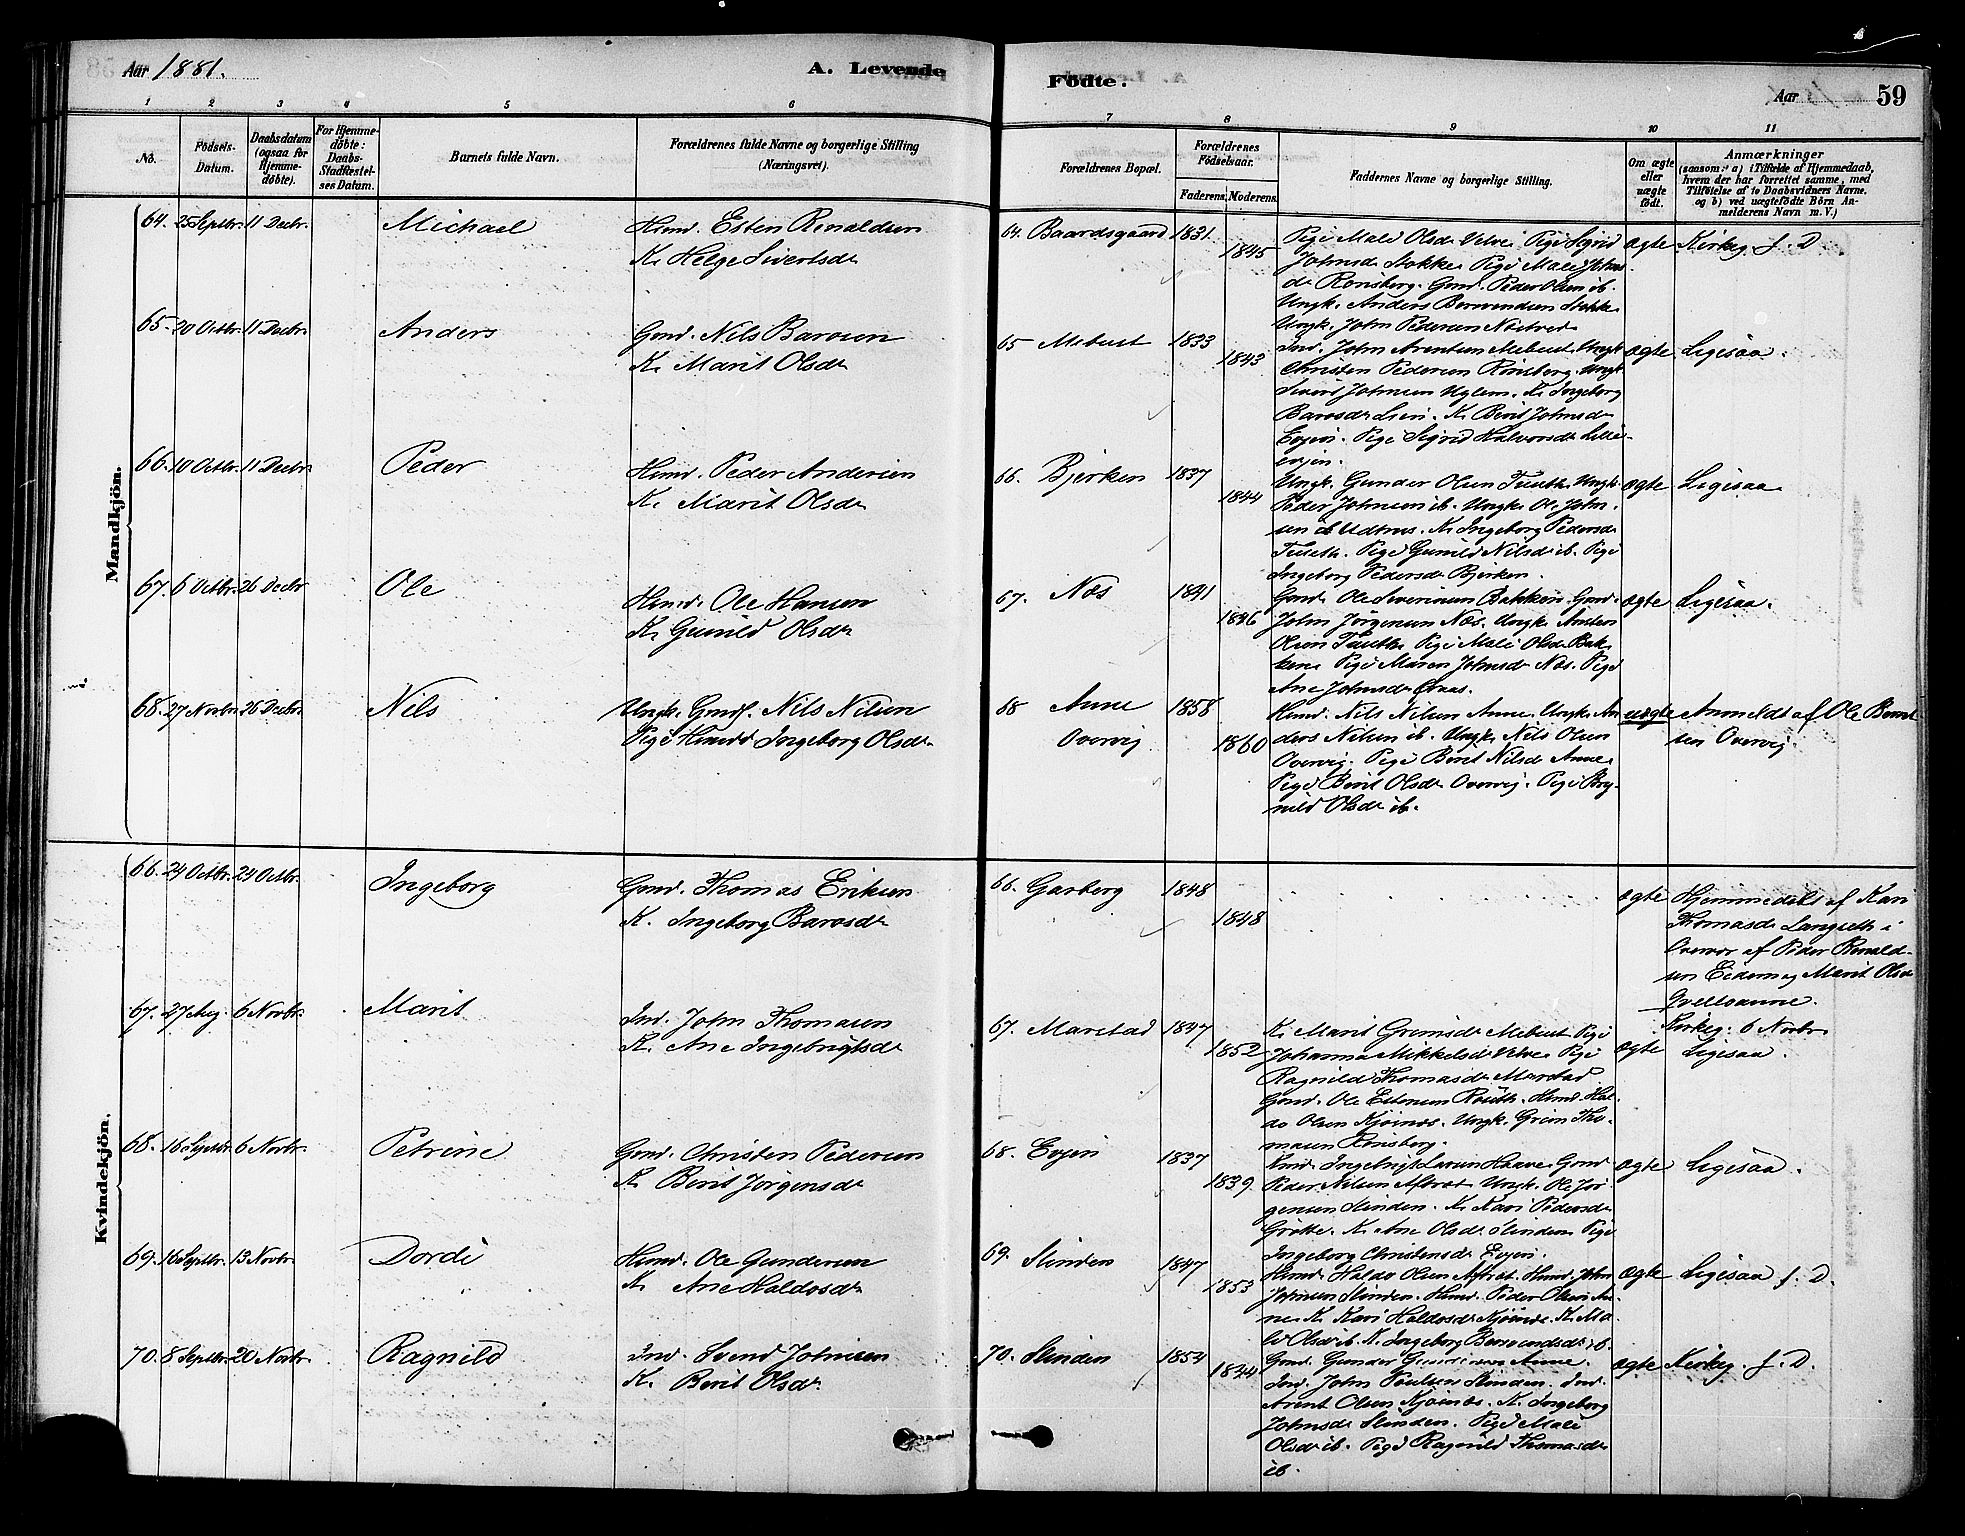 Aar 1881.
A. Levende
Födte.
Aar
59
1 2 3 4 5 6
7 8 9 10 11
No.
Födsels-
Datum.
Daabsdatum
(ogsaa for
Hjemme-
döbte).
For Hjemme-
döbte:
Daabs-
Stadfæstel-
ses Datum.
Barnets fulde Navn.
Forældrenes fulde Navne og borgerlige Stilling
(Næringsvei).
Forældrenes Bopæl.
Forældrenes
Födselsaar.
Faderens. Moderens.
Faddernes Navne og borgerlige Stilling.
Om ægte
eller
uægte
födt.
Anmærkninger
(saasom: a) i Tilfælde af Hjemmedaab,
hvem der har forrettet samme, med
Tilföielse af to Daabsvidners Navne,
og b) ved uægtefödte Börn An-
melderens Navn m. V.)
Mandkjön.
64. 25 Septbr. 11 Decbr.
Michael
Husmd. Esten Renaldsen
K. Helge Sivertsdr
64. Baardsgaard 1831
1845
Pige Mali Olsdr Velve. Pige Sigrid
Johnsdr Stokke. Pige Mali Johns-
dr Rönsberg. Gmd. Peder Olsen ib.
Ungk. Anders Bersvendsen Stokke
Ungk. John Pedersen Näsitred
ægte
Kirkeg. f. D.
65. 20 Octbr. 11 Decbr.
Anders
Gmd. Nils Baroson
K. Marit Olsdr
65 Mebust 1833
1843
Ind. John Arentsen Mebust. Ungk
Christen Pedersen Rönsberg. Ungk
Sivert Johnsen Uglem. K. Ingeborg
Barosdr Lien. K. Berit Johnsdr
Evjen. Pige Sigrid Halvorsdr Lille-
evjen.
ægte
Ligesaa.
66. 10 Octbr. 11 Decbr.
Peder
Husmd. Peder Andersen
K. Marit Olsdr
66. Bjerken 1837
1844
Ungk. Gunder Olsen Tuseth. Ungk.
Peder Johnsen ib. Ungk. Ole John-
sen ib Udtrøs. K. Ingeborg Pedersdr
Tuseth. Pige Gunild Nilsdr ib. Pige
Ingeborg Pedersdr Bjerken.
ægte
Ligesaa
67. 6 Octbr. 26 Decbr
Ole
Husmd. Ole Hansen
K. Gunild Olsdr
67. Næs 1841
1846
Gmd. Ole Severinsen Bakken. Gmd.
John Jörgensen Næs. Ungk. Anders
Olsen Tuseth. Pige Mali Olsdr Bak-
ken. Pige Maren Johnsdr Næs. Pige
Ane Johnsdr
ægte
Ligesaa.
68. 27 Novbr. 26 Decbr.
Nils
Ungk. Gmdf. Nils Nilsen
Pige Husmdd. Ingeborg Olsdr
68 Aune
Overvig
1858
1860
Husmd. Nils Nilsen Aune. Ungk. An
ders Nilsen ib. Ungk. Nils Olsen
Overvig. Pige Berit Nilsdr Aune.
Pige Berit Olsdr Overvig. Pige Rag-
nild Olsdr ib.
uægte
Anmeldt af Ole Bernt
sen Overvig.
Kvindekjön.
66. 24 Octbr. 24 Octbr.
Ingeborg
Gmd. Thomas Eriksen
K. Ingeborg Barosdr
66. Garberg 1848
1848
ægte
Hjemmedöbt af Kari
Thomasdr Langseth i
Overvær af Peder Renald-
sen Eidem og Marit Olsdr
Qvelloaune.
Kirkeg. 6 Novbr.
67. 27 Aug. 6 Novbr.
Marit
Ind. John Thomasen
K. Ane Ingebrigtsdr
67. Marstad 1847
1852
K. Marit Grimsdr Mebust. Pige
Johanna Mikkelsdr Velve. Pige
Ragnild Thomasdr Marstad
Gmd. Ole Estensen Röseth. Husmd. Hal-
do Olsen Kjösnæs. Ungk. Grim Tho-
masen Rönsberg.
ægte
Ligesaa.
68. 16 Septbr. 6 Novbr.
Petrine
Gmd. Christen Pedersen
K. Berit Jörgensdr
68. Evjen 1837
1839
Husmd. Ingebrigt Larsen Haave. Gmd
Peder Nilsen Aftret. Ungk. Ole Jör-
gensen Slinden. K. Kari Pedersdr
Grötte. K. Ane Olsdr Slinden. Pige
Ingeborg Christensdr Evjen.
ægte
Ligesaa.
69. 16 Septbr. 13 Novbr.
Dordi
Husmd. Ole Gundersen
K. Ane Haldosdr
69. Slinden 1847
1853
Husmd. Haldo Olsen Aftret. Husmd. John
Johnsen Slinden. Husmd. Peder Olsen Au-
ne. K. Kari Haldosdr Kjösnæs. K. Ma-
li Olsdr ib. K. Ingeborg Bersvendsdr ib.
ægte
Ligesaa f. D.
70. 8 Septbr. 20 Novbr.
Ragnild
Ind. Svend Johnsen
K. Berit Olsdr
70. Slinden 1854
1844
Gmd. Gunder Gundersen Aune.
Ind. John Poulsen Slinden. Ind.
Arent Olsen Kjösnæs. K. Ingeborg
Johnsdr Slinden. Pige Mali
Olsdr ib. Pige Ragnild Thomasdr
ib.
ægte
Kirkeg. f. D.